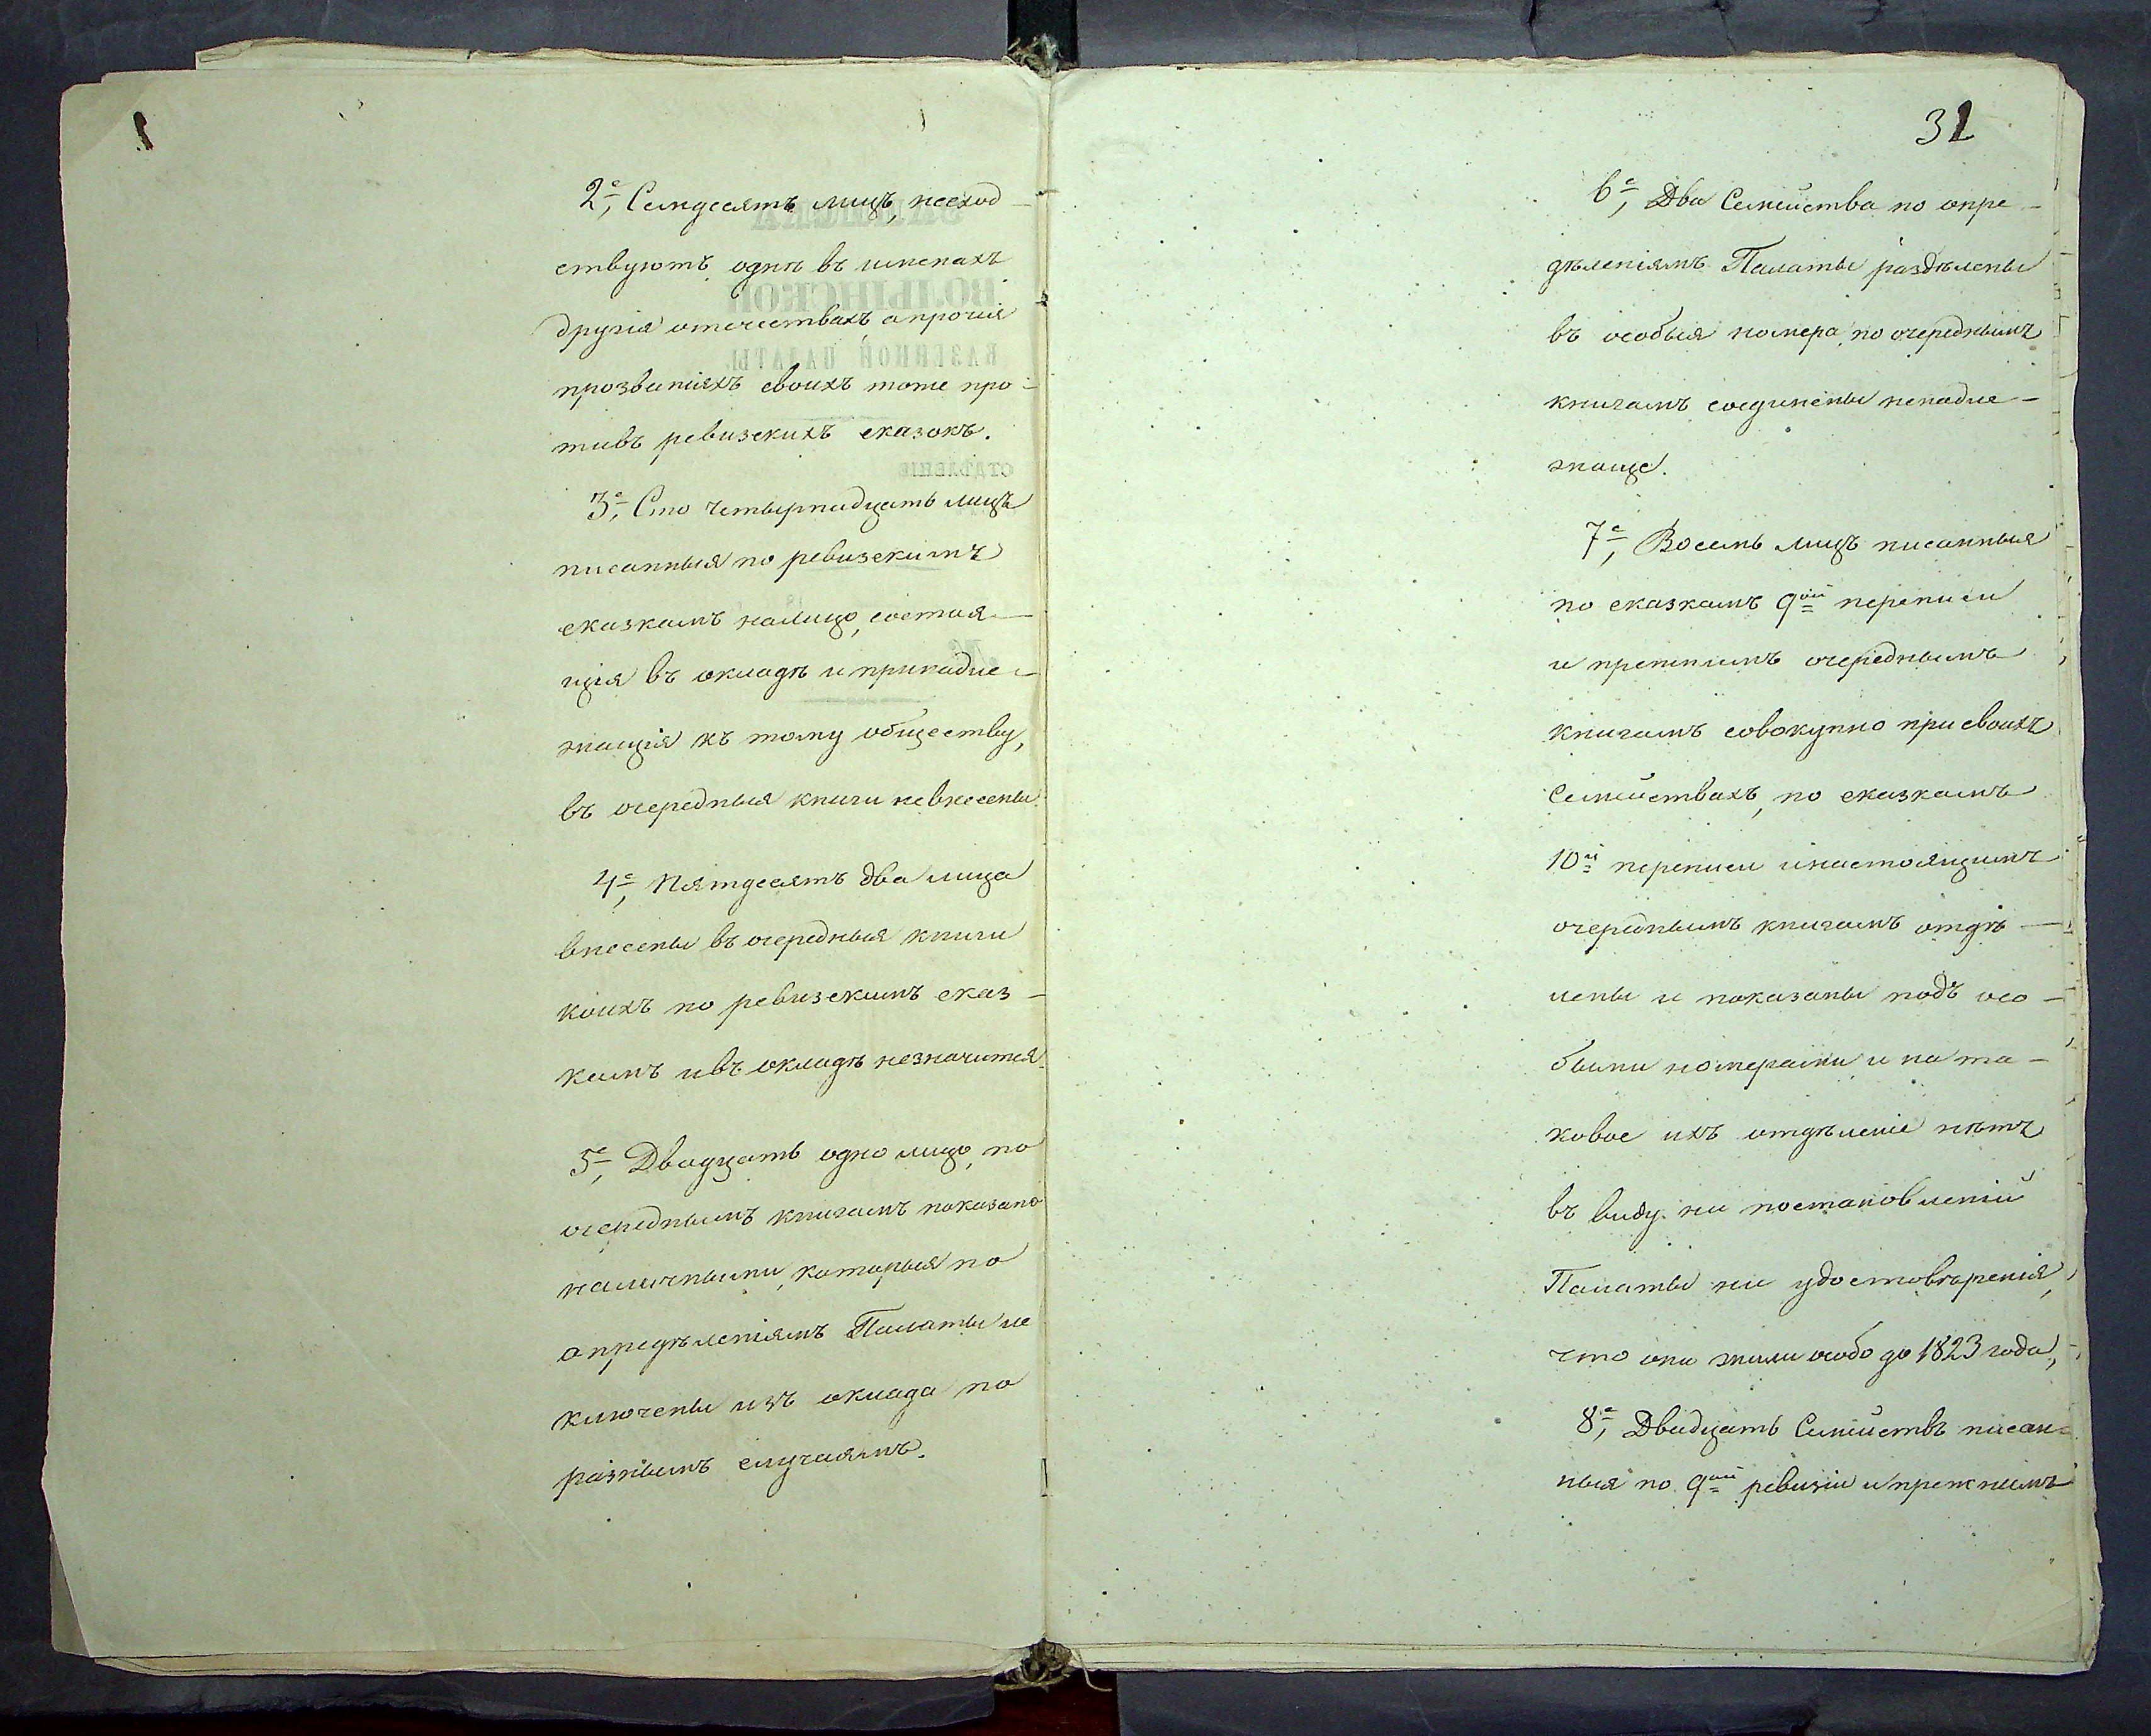 2е, Семдесятъ лицъ, несход-
ствуютъ однѣ въ именахъ
другія отчествахъ а прочія
прозваніяхъ своихъ тоже про-
тивъ ревизскихъ сказокъ.
3е, Сто четырнадцать лицъ
писанныя по ревизскимъ
сказкамъ налицо, состоя-
щія въ окладѣ и принадле-
жащія къ тому обществу,
въ очередныя книги невнесены.
4е, Пятдесятъ два лица
внесены въ очередныя книги
коихъ по ревизскимъ сказ-
камъ ивъ окладѣ незначится.
5е, Двадцать одно лицо, по
очереднымъ книгамъ показано
наличными, которыя по
опредѣленіямъ Палаты не
ключены изъ оклада по
разнымъ случаямъ.
31
6е, Два Семейства по опре-
дѣленіямъ Палаты раздѣлены
въ особыя номера, по очереднымъ
книгамъ соединены ненадле-
жаще.
7е, Восемь лицъ писанныя
по сказкамъ 9ой переписи
и прежнимъ очереднымъ
книгамъ совокупно при своихъ
Семействахъ, по сказкамъ
10й переписи инастоящимъ
очереднымъ книгамъ отдѣ-
лены и показаны подъ осо-
быми номерами и на та-
ковое ихъ отдѣленіе нѣтъ
въ виду ни постановленій
Палаты ни удостовѣренія,
что они жили особо до 1823 года,
8е, Двадцать Семействъ писан-
ныя по 9ой ревизіи и прежнимъ
ВОЛЫНСКОЙ
КАЗЕННОЙ ПАЛАТЫ.
ОТДѢЛЕНІЕ